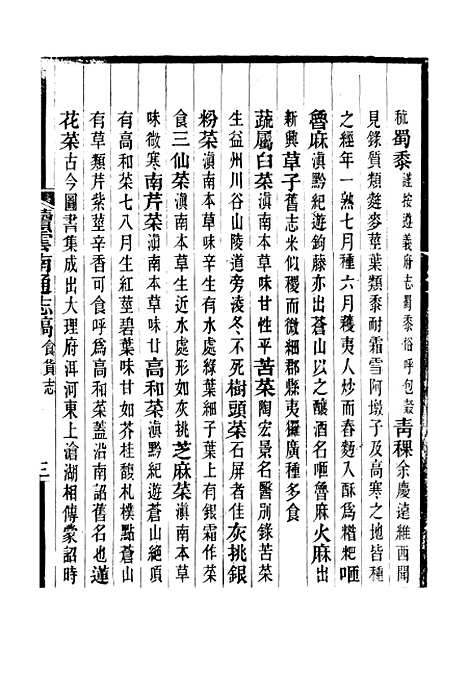 秔蜀黍謹按遵義府志蜀黍俗呼包穀青稞余慶遠維西聞
見錄質類麰麥莖葉類黍耐霜雪阿墩子及高寒之地皆種
之經年一熟七月種六月穫夷人炒而舂麪入酥爲糌粑咂
魯麻滇黔紀遊鉤藤亦出蒼山以之釀酒名咂魯麻火麻出
新興草子舊志米似稷而微細郡縣夷玀廣種多食
蔬屬白菜滇南本草味甘性平苦菜陶宏景名醫別錄苦菜
生益州川谷山陵道旁淩冬不死樹頭菜石屏者佳灰挑銀
粉菜滇南本草生近水處形如灰挑綠葉細子葉上有銀霜作菜
食三仙菜滇南本草生有水處形如灰挑芝麻菜滇南本草
味微寒南芹菜滇南本草味甘高和菜滇黔紀遊蒼山絕頂
有高和菜七八月生紅莖碧葉味甘如芥桂馥札樸點蒼山
有草類芹紫莖辛香可食呼爲高和菜蓋沿南詔舊名也蓮
花菜古今圖書集成出大理府洱河東上滄湖相傳蒙詔時
續雲南通志稿 食貨志
三